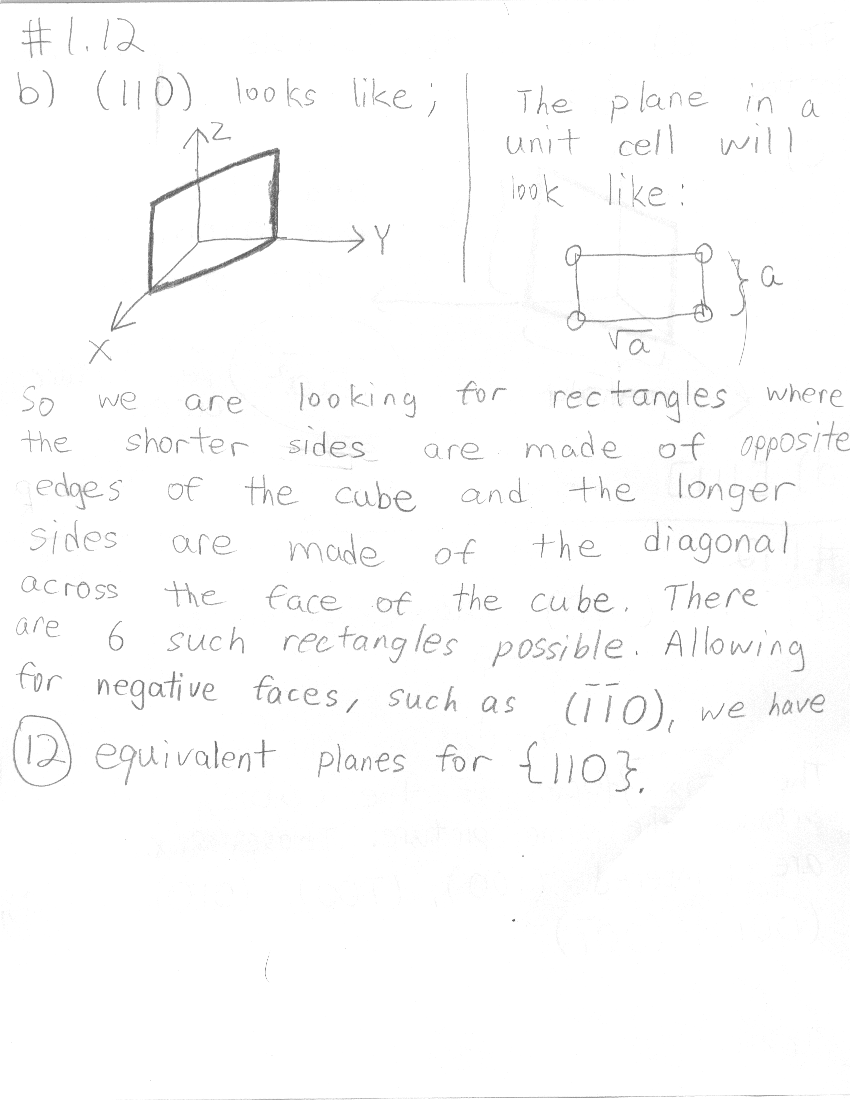 #1.12
b) (110) looks like;
Z
Y
X
The plane in a
unit cell will
look like:
a
√a
So we are looking for rectangles where
the shorter sides are made of opposite
edges of the cube and the longer
sides are made of the diagonal
across the face of the cube. There
are 6 such rectangles possible. Allowing
for negative faces, such as (1̅1̅0), we have
12 equivalent planes for {110}.